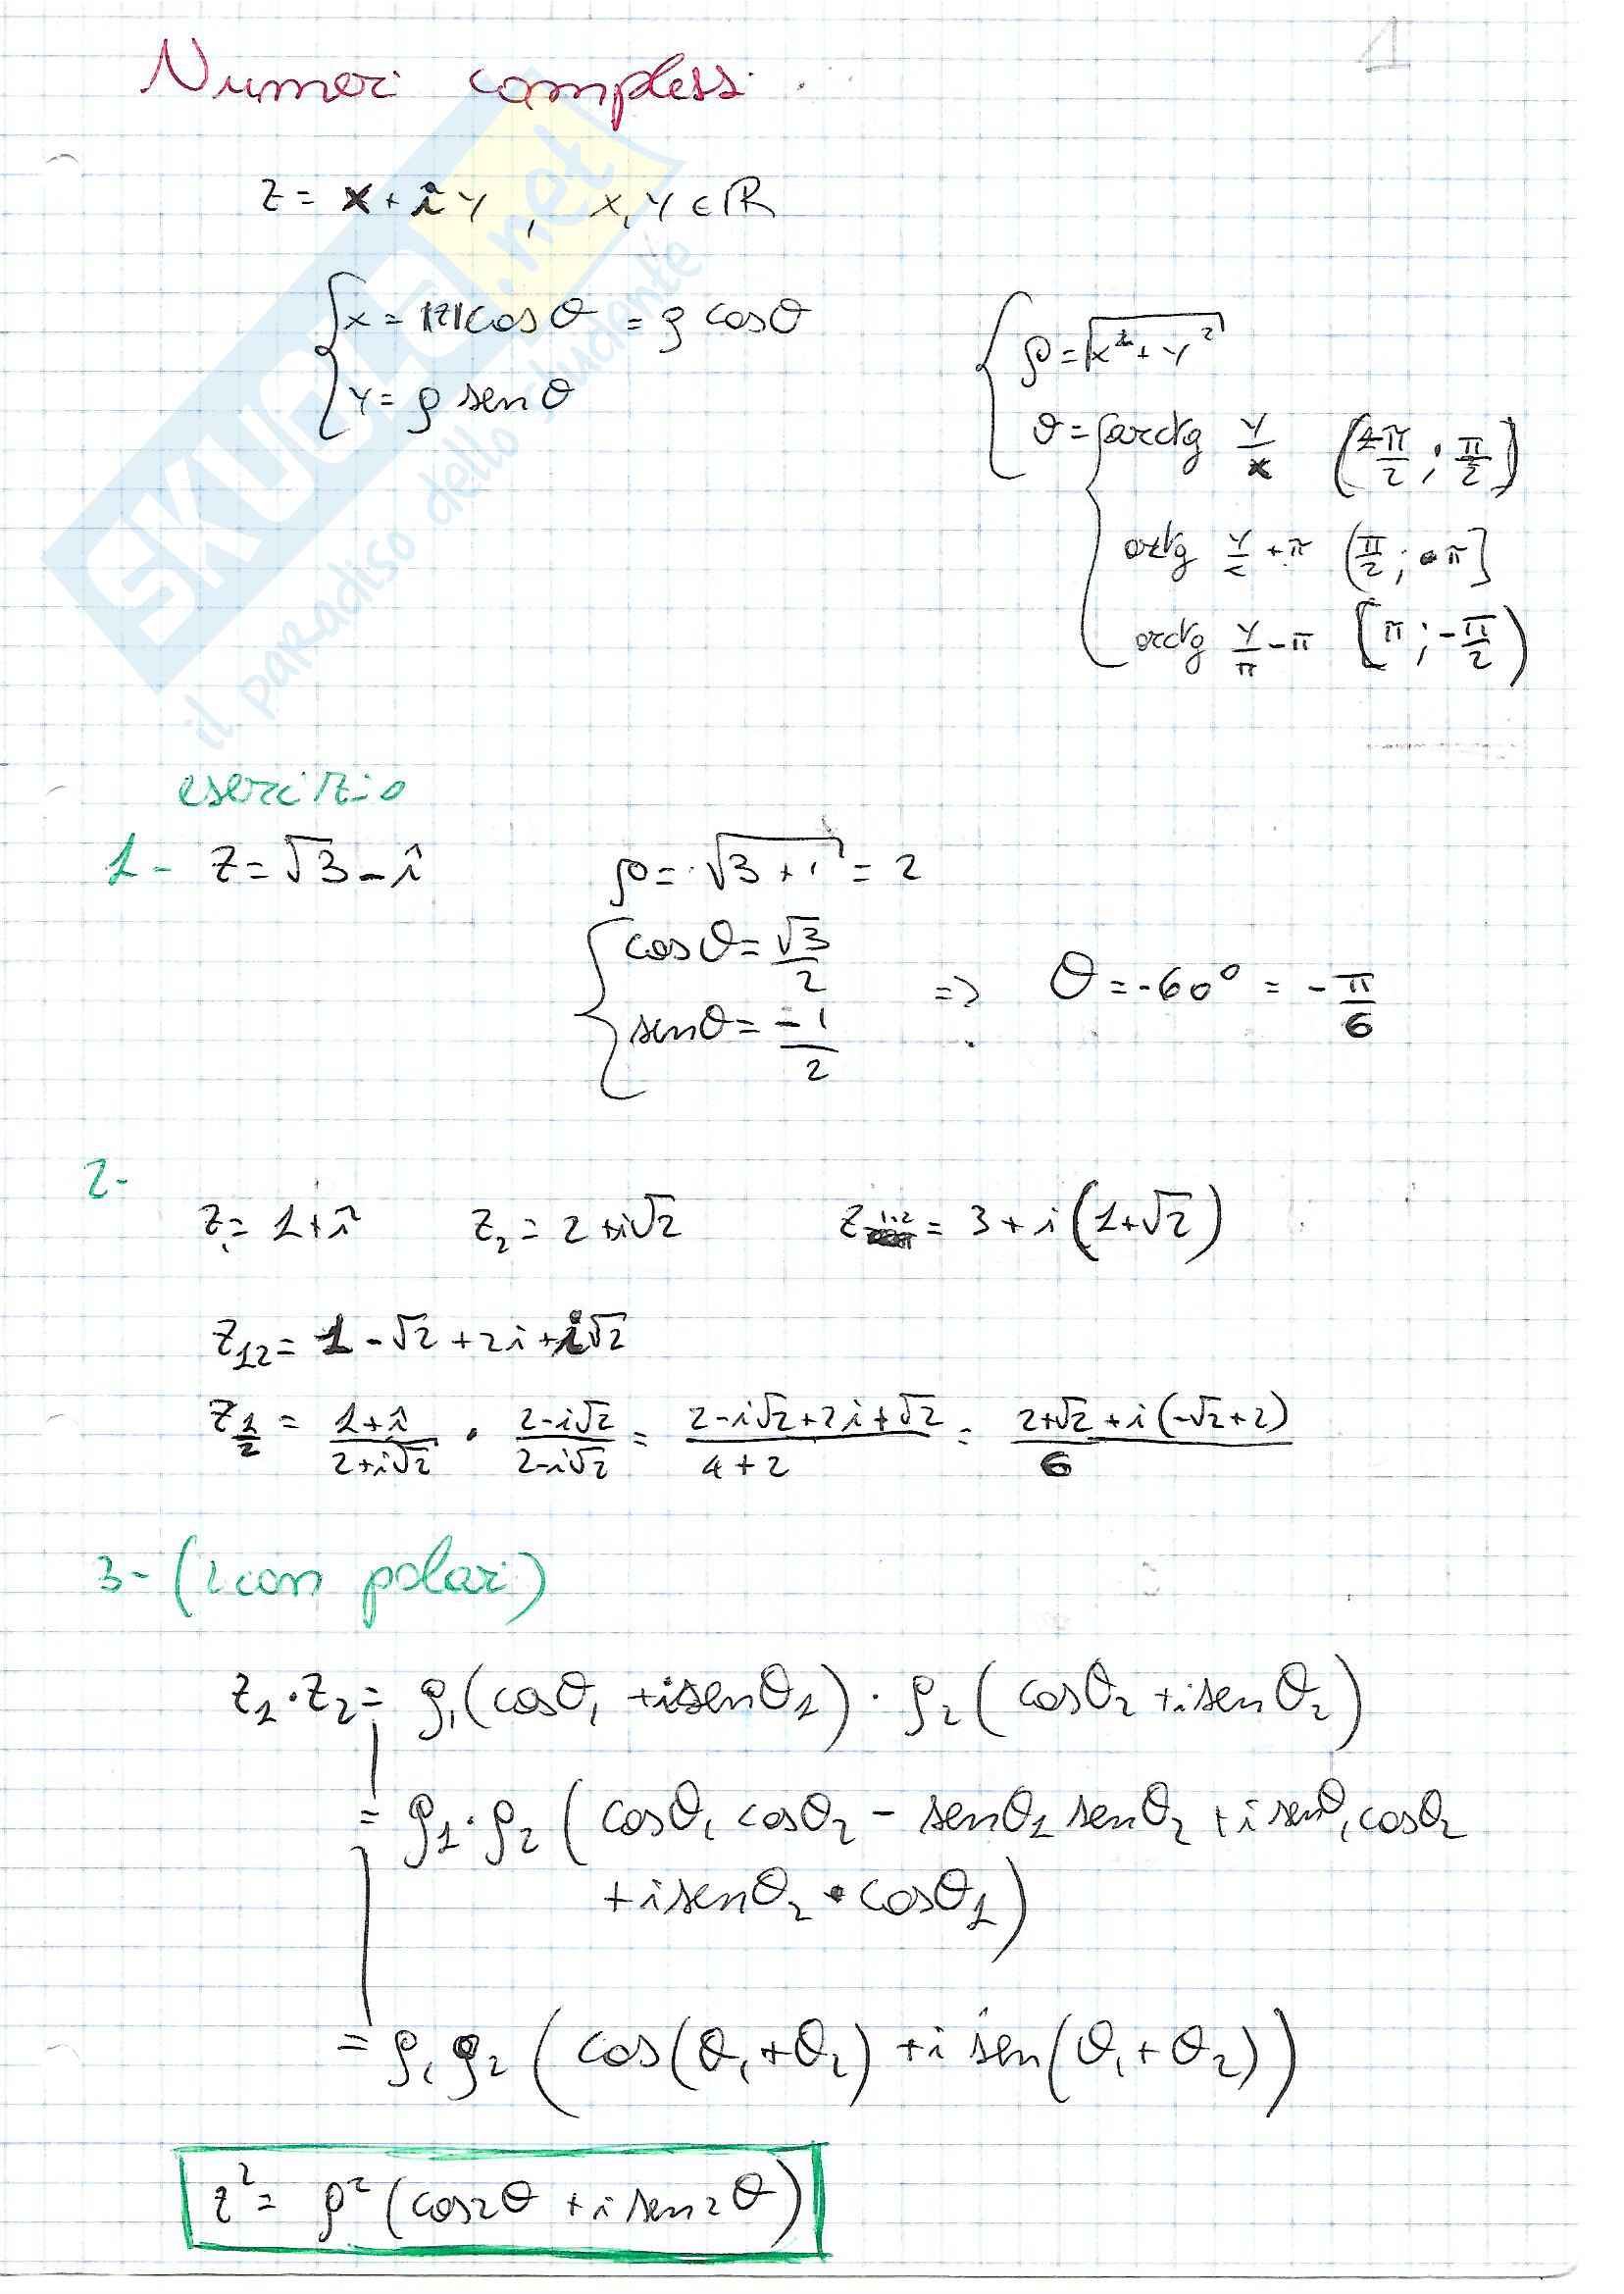 1
Numeri complessi
z = x + iy , x, y ∈ ℝ
{ x = |z| cos θ = ρ cos θ
y = ρ sen θ
{ ρ = √(x² + y²)
θ = { arctg y/x ( π/2 ; π/2 )
arctg y/ + π ( π/2 ; π ]
arctg y/π - π [ π ; -π/2 )
SKUOLA.net
il paradiso dello studente
esercizio
1- z = √3 - i ρ = √(3 + 1) = 2
{ cos θ = √3/2
sen θ = -1/2 => θ = -60° = -π/6
2-
z₁ = 1 + i z₂ = 2 + i√2 z = 3 + i (1 + √2)
z₁₂ = 1 - √2 + 2i + i√2
z_{1/2} = (1 + i)/(2 + i√2) · (2 - i√2)/(2 - i√2) = (2 - i√2 + 2i + √2)/(4 + 2) = (2 + √2 + i(-√2 + 2))/6
3- (2 con polari)
z₁ · z₂ = ρ₁ (cos θ₁ + i sen θ₁) · ρ₂ (cos θ₂ + i sen θ₂)
= ρ₁ · ρ₂ ( cos θ₁ cos θ₂ - sen θ₁ sen θ₂ + i sen θ₁ cos θ₂
+ i sen θ₂ · cos θ₁ )
= ρ₁ ρ₂ ( cos(θ₁ + θ₂) + i sen(θ₁ + θ₂) )
z² = ρ² (cos 2θ + i sen 2θ)